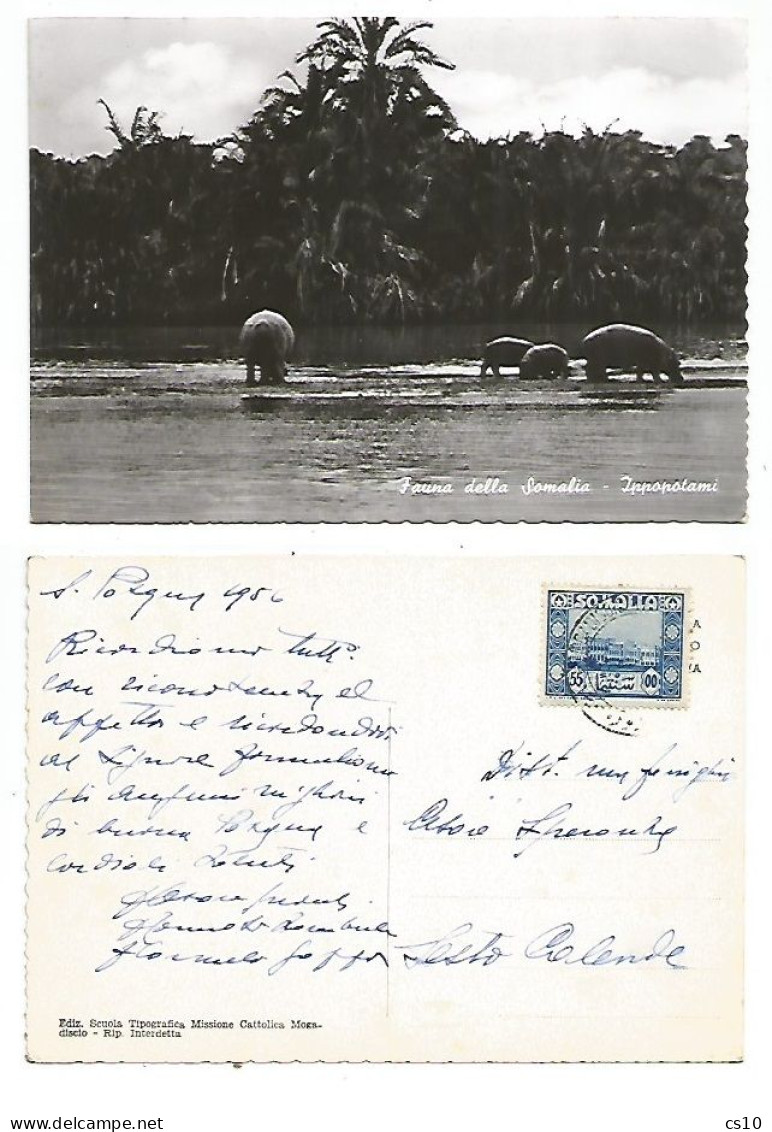 Fauna della Somalia - Ippopotami
S. Pasqua 1956
SOMALIA
55 00
A
O
A
Ricordiamo tutti
con riconoscenza ed
affetto e ricordandovi
al Signore formuliamo
gli auguri migliori
di buona Pasqua e
cordiali saluti
Dist. ma famiglia
Speranza
Sesto Calende
Ediz. Scuola Tipografica Missione Cattolica Moga-
discio - Rip. Interdetta
cs10